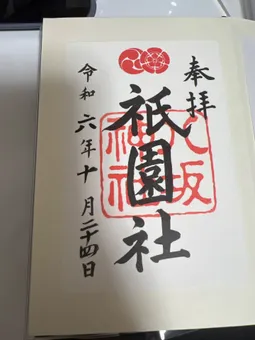 奉拝
祇園社
八坂
神社
令和六年十月二十四日